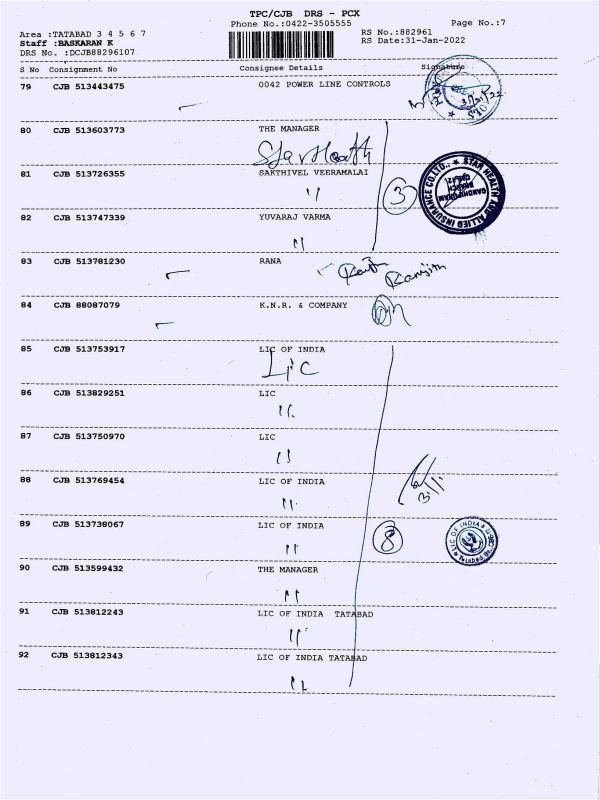 TPC/CJB DRS - PCX
Phone No.:0422-3505555 Page No.:7
Area :TATABAD 3 4 5 6 7 RS No.:882961
Staff :BASKARAN K RS Date:31-Jan-2022
DRS No. :DCJB88296107
S No Consignment No Consignee Details Signature
79 CJB 513443475 0042 POWER LINE CONTROLS
80 CJB 513603773 THE MANAGER
Star Health
81 CJB 513726355 SAKTHIVEL VEERAMALAI
"
3
STAR HEALTH AND ALLIED INSURANCE CO.LTD.,
GANDHIPURAM
BRANCH
82 CJB 513747339 YUVARAJ VARMA
"
83 CJB 513781230 RANA
84 CJB 88087079 K.N.R. & COMPANY
85 CJB 513753917 LIC OF INDIA
LIC
86 CJB 513829251 LIC
"
87 CJB 513750970 LIC
"
88 CJB 513769454 LIC OF INDIA
"
89 CJB 513738067 LIC OF INDIA
"
8
LIC OF INDIA
90 CJB 513599432 THE MANAGER
"
91 CJB 513812243 LIC OF INDIA TATABAD
"
92 CJB 513812343 LIC OF INDIA TATABAD
"